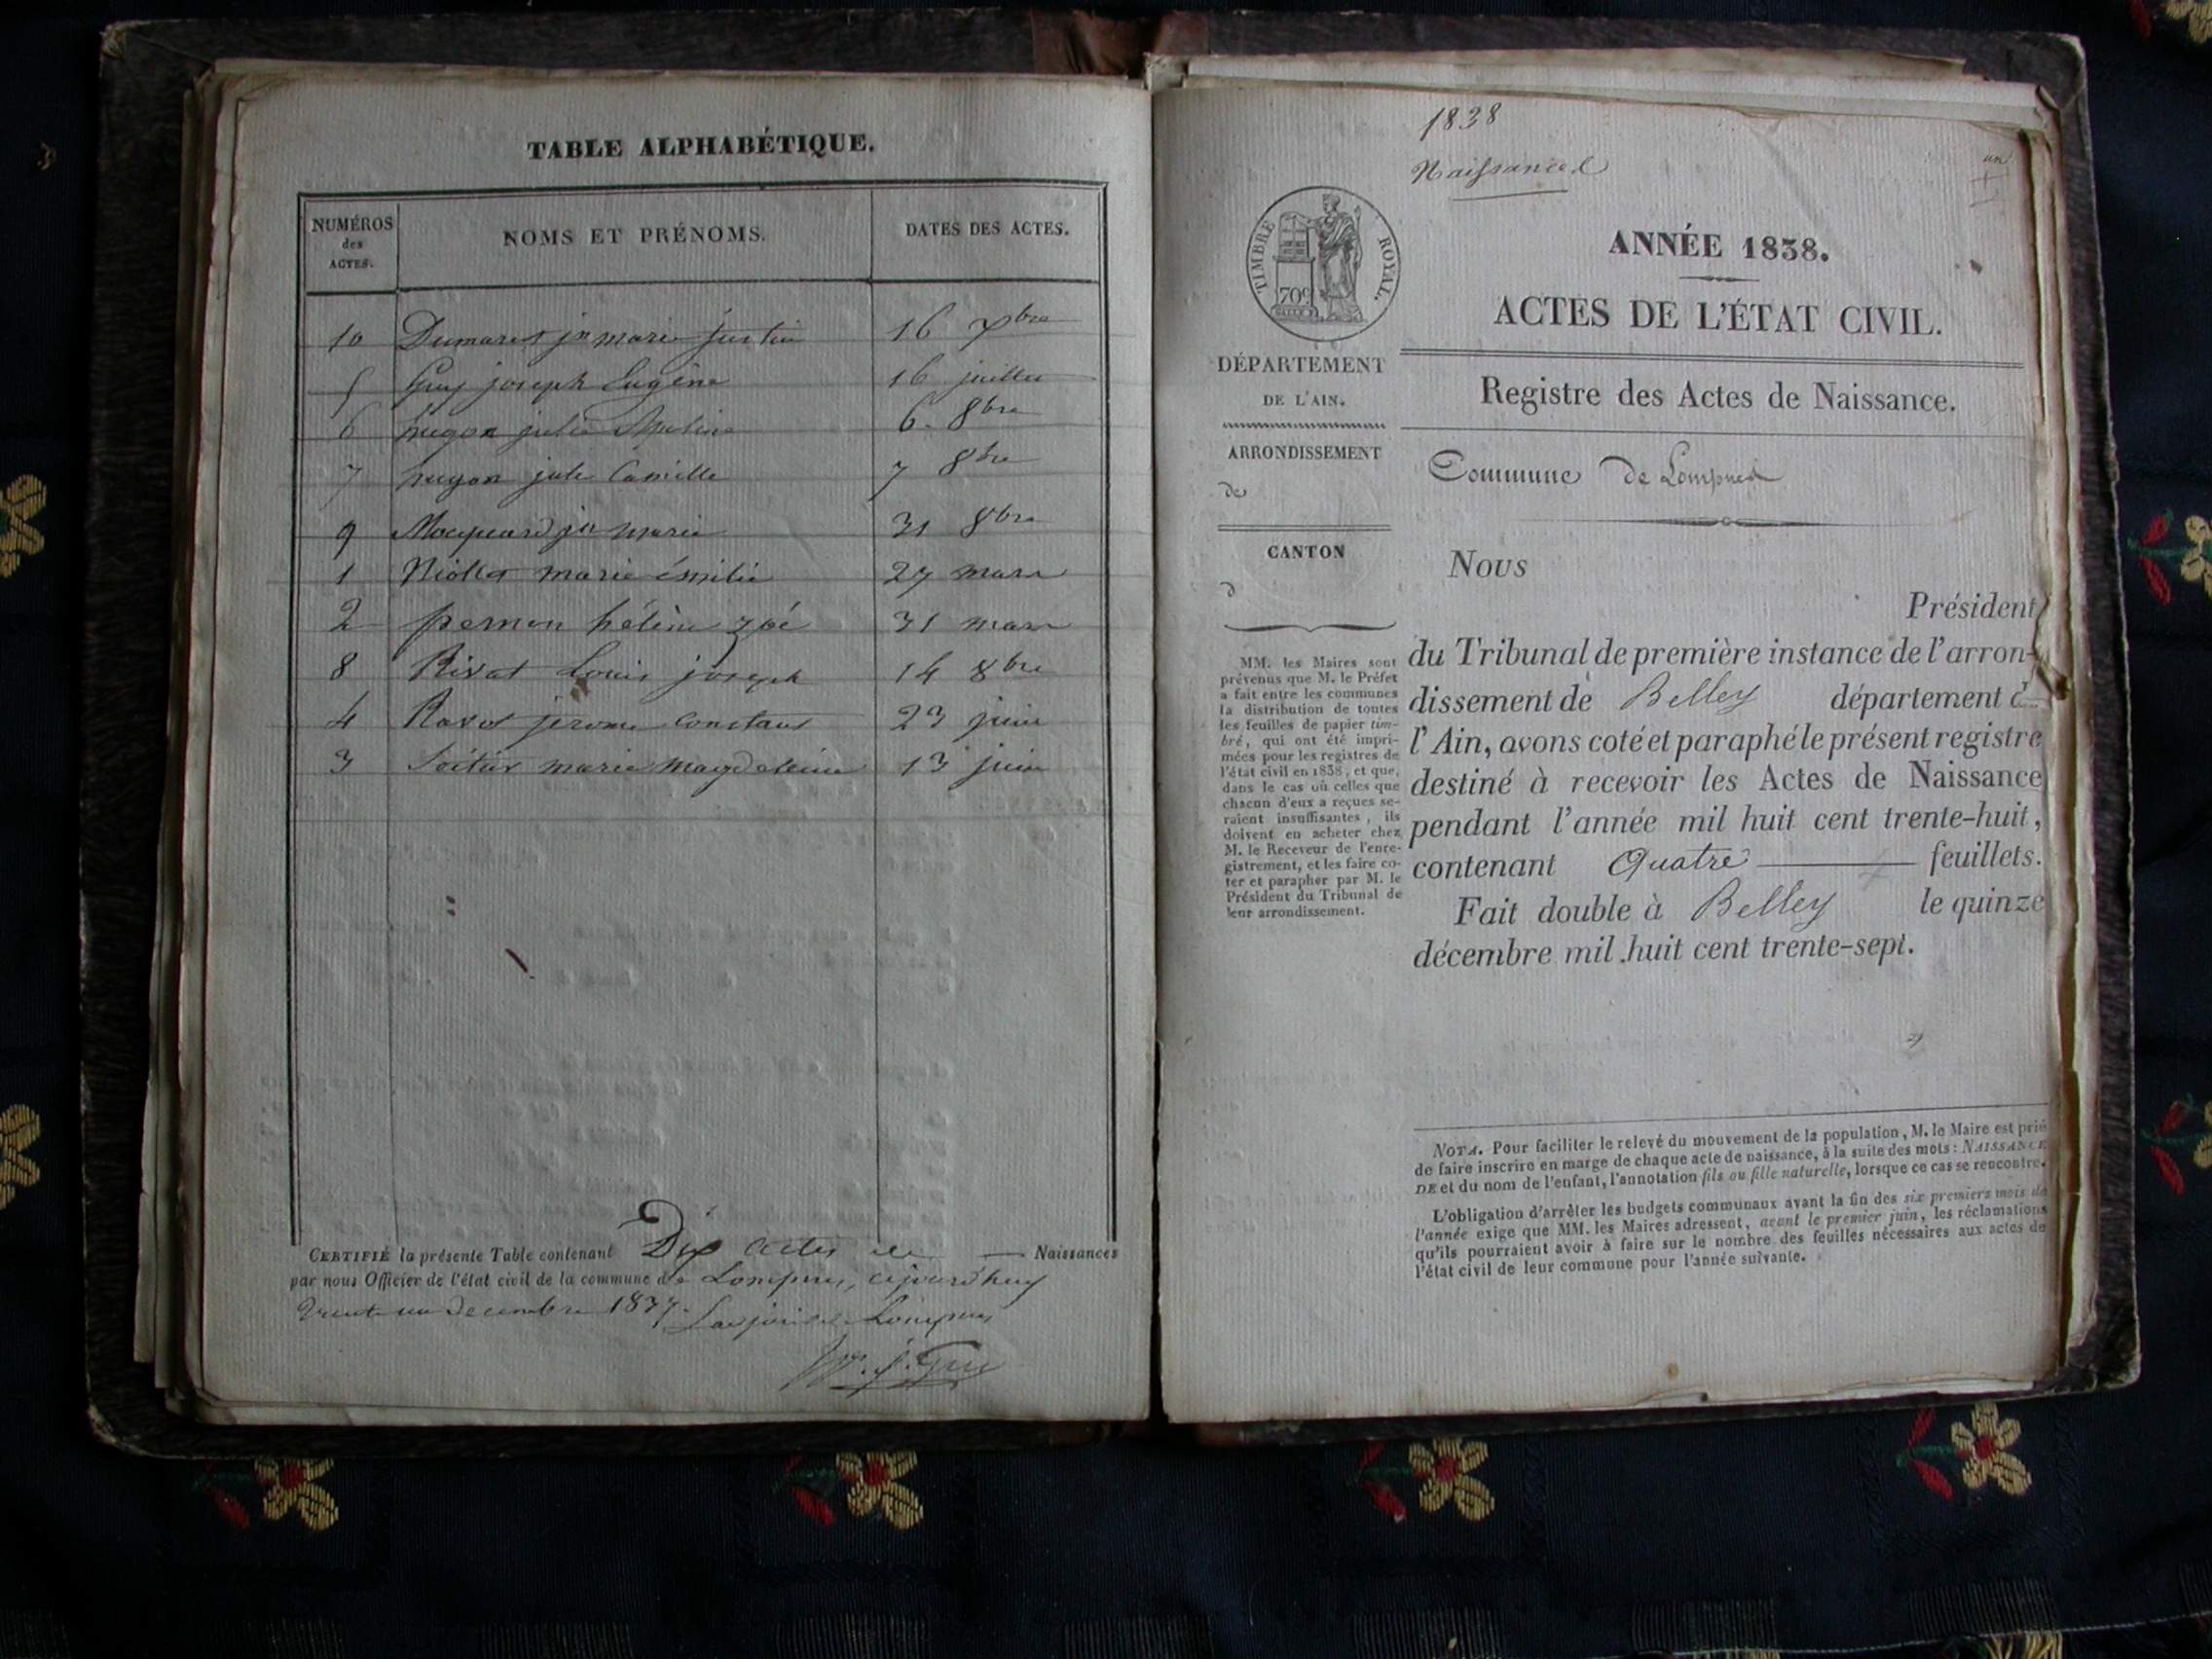 TABLE ALPHABÉTIQUE.
NUMÉROS des ACTES. NOMS ET PRÉNOMS. DATES DES ACTES.
10 jn marie justin 16
5 Guy joseph Eugène 16 juillet
6 hugon julie 6. 8bre
7 hugon jule Camille 7 8bre
9 jn marie 31 8bre
1 marie émilie 27 mars
2 pernon hélène zoé 31 mars
8 Rivat Louis joseph 14 8bre
4 jerome Constant 23 juin
3 marie magdeleine 13 juin
CERTIFIÉ la présente Table contenant Dix actes de Naissances
par nous Officier de l'état civil de la commune de Lompnes, aujourd'huy
trente un decembre 1837.
1838
Naissances
un
TIMBRE ROYAL.
70c
ANNÉE 1838.
ACTES DE L'ÉTAT CIVIL.
Registre des Actes de Naissance.
Commune de Lompnes
DÉPARTEMENT
DE L'AIN.
ARRONDISSEMENT
de
CANTON
d
MM. les Maires sont
prévenus que M. le Préfet
a fait entre les communes
la distribution de toutes
les feuilles de papier tim-
bré, qui ont été impri-
mées pour les registres de
l'état civil en 1838, et que,
dans le cas où celles que
chacun d'eux a reçues se-
raient insuffisantes, ils
doivent en acheter chez
M. le Receveur de l'enre-
gistrement, et les faire co-
ter et parapher par M. le
Président du Tribunal de
leur arrondissement.
Nous
Président
du Tribunal de première instance de l'arron-
dissement de Belley département d
l'Ain, avons coté et paraphé le présent registre
destiné à recevoir les Actes de Naissance
pendant l'année mil huit cent trente-huit,
contenant Quatre feuillets.
Fait double à Belley le quinze
décembre mil huit cent trente-sept.
NOTA. Pour faciliter le relevé du mouvement de la population, M. le Maire est prié
de faire inscrire en marge de chaque acte de naissance, à la suite des mots: NAISSANCE
DE et du nom de l'enfant, l'annotation fils ou fille naturelle, lorsque ce cas se rencontre.
L'obligation d'arrêter les budgets communaux avant la fin des six premiers mois de
l'année exige que MM. les Maires adressent, avant le premier juin, les réclamations
qu'ils pourraient avoir à faire sur le nombre des feuilles nécessaires aux actes de
l'état civil de leur commune pour l'année suivante.